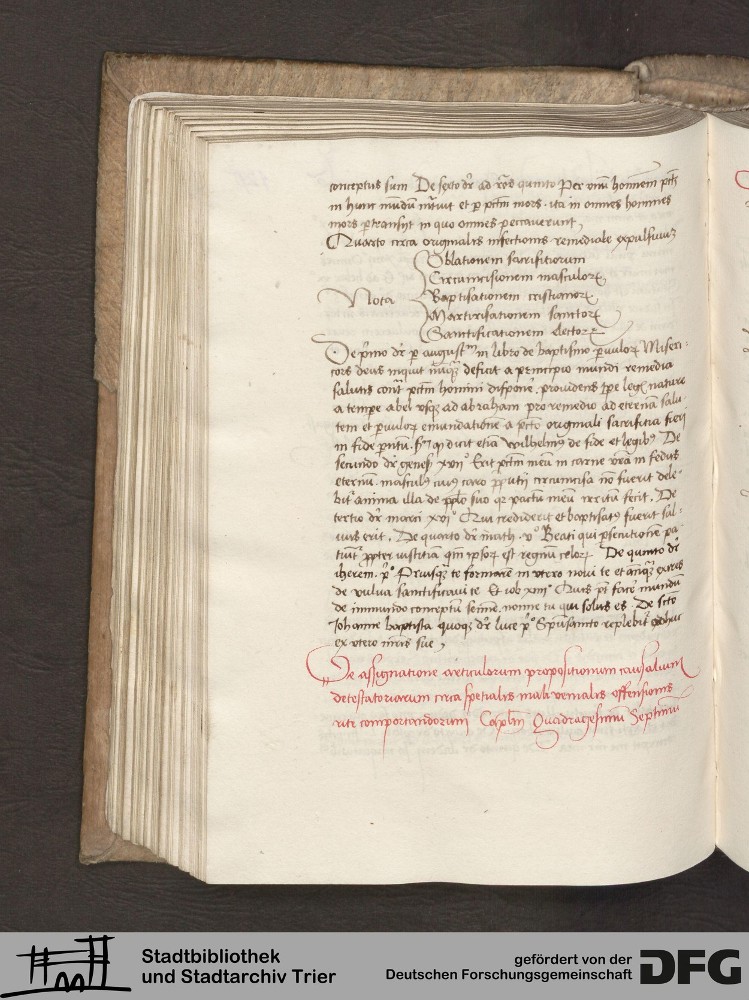 conceptus sum De sexto dr̄ ad ro͞m quinto Per vnū hominem pctm̄
in hunc mūdū intrāuit et p pctm̄ mors. ita in omnes homines
mors ptransijt in quo omnes peccauerunt,
Quarto circa originalis infectionis remediale expulsiuū
Oblationem sacrificiorum
Circumcisionem masculorꝝ
Nota Baptisationem cristianorꝝ
Martirisationem sanctorꝝ
Sanctificationem electorꝝ
De pͥmo dr̄ p augustm̄ in libro de baptismo puulorꝝ Miseri:
cors deus inquit nūqꝫ deficit a principio mundi remedia
salutis contͣ pctm̄ homini disponē. prouidens tpe legͥ nature
a tempe abel vsqꝫ ad abraham pro remedio ad eternā salu
tem et puulorꝝ emundatione a pctō originali sacrificia fieri
in fide pntū. qͥ dicit etiā wilhelmꝰ de fide et legibꝰ De
secundo dr̄ genesi xvijͦ Erit pctm̄ meū in carne vrā in fedus
eternū. masculꝰ cuiꝰ caro pputij circumcisa nō fuerit dele-
bitͬ anima illa de pplo suo qꝛ pactū meū irritū fecit. De
tertio dr̄ marci xvjͦ Qui crediderit et baptisatꝰ fuerit sal-
uus erit. De quarto dr̄ math. vͦ Beati qui psecutionē pa
tiūtͬ ppter iusticiā qm̄ ipsorꝝ est regnū celorꝝ De quinto dr̄
iherem. pͦ Priusqꝫ te formarē in vtero noui te et anteqꝫ exires
de vulua sanctificaui te Et iob xiiijͦ Quis pt facē mundū
de immundo conceptū semīe. nonne tu qui solus es. De
Iohanne baptista quoqꝫ dr̄ luce pͦ Spūsancto replebitͬ adhuc
ex vtero mr̄is sue,
De assignatione articulorum propositionum causalium
detestatoriarum circa spetialis mali venialis offensionis
rite comportandorum Caplm̄ Quadragesimū Septimū
Stadtbibliothek
und Stadtarchiv Trier
gefördert von der
Deutschen Forschungsgemeinschaft
DFG